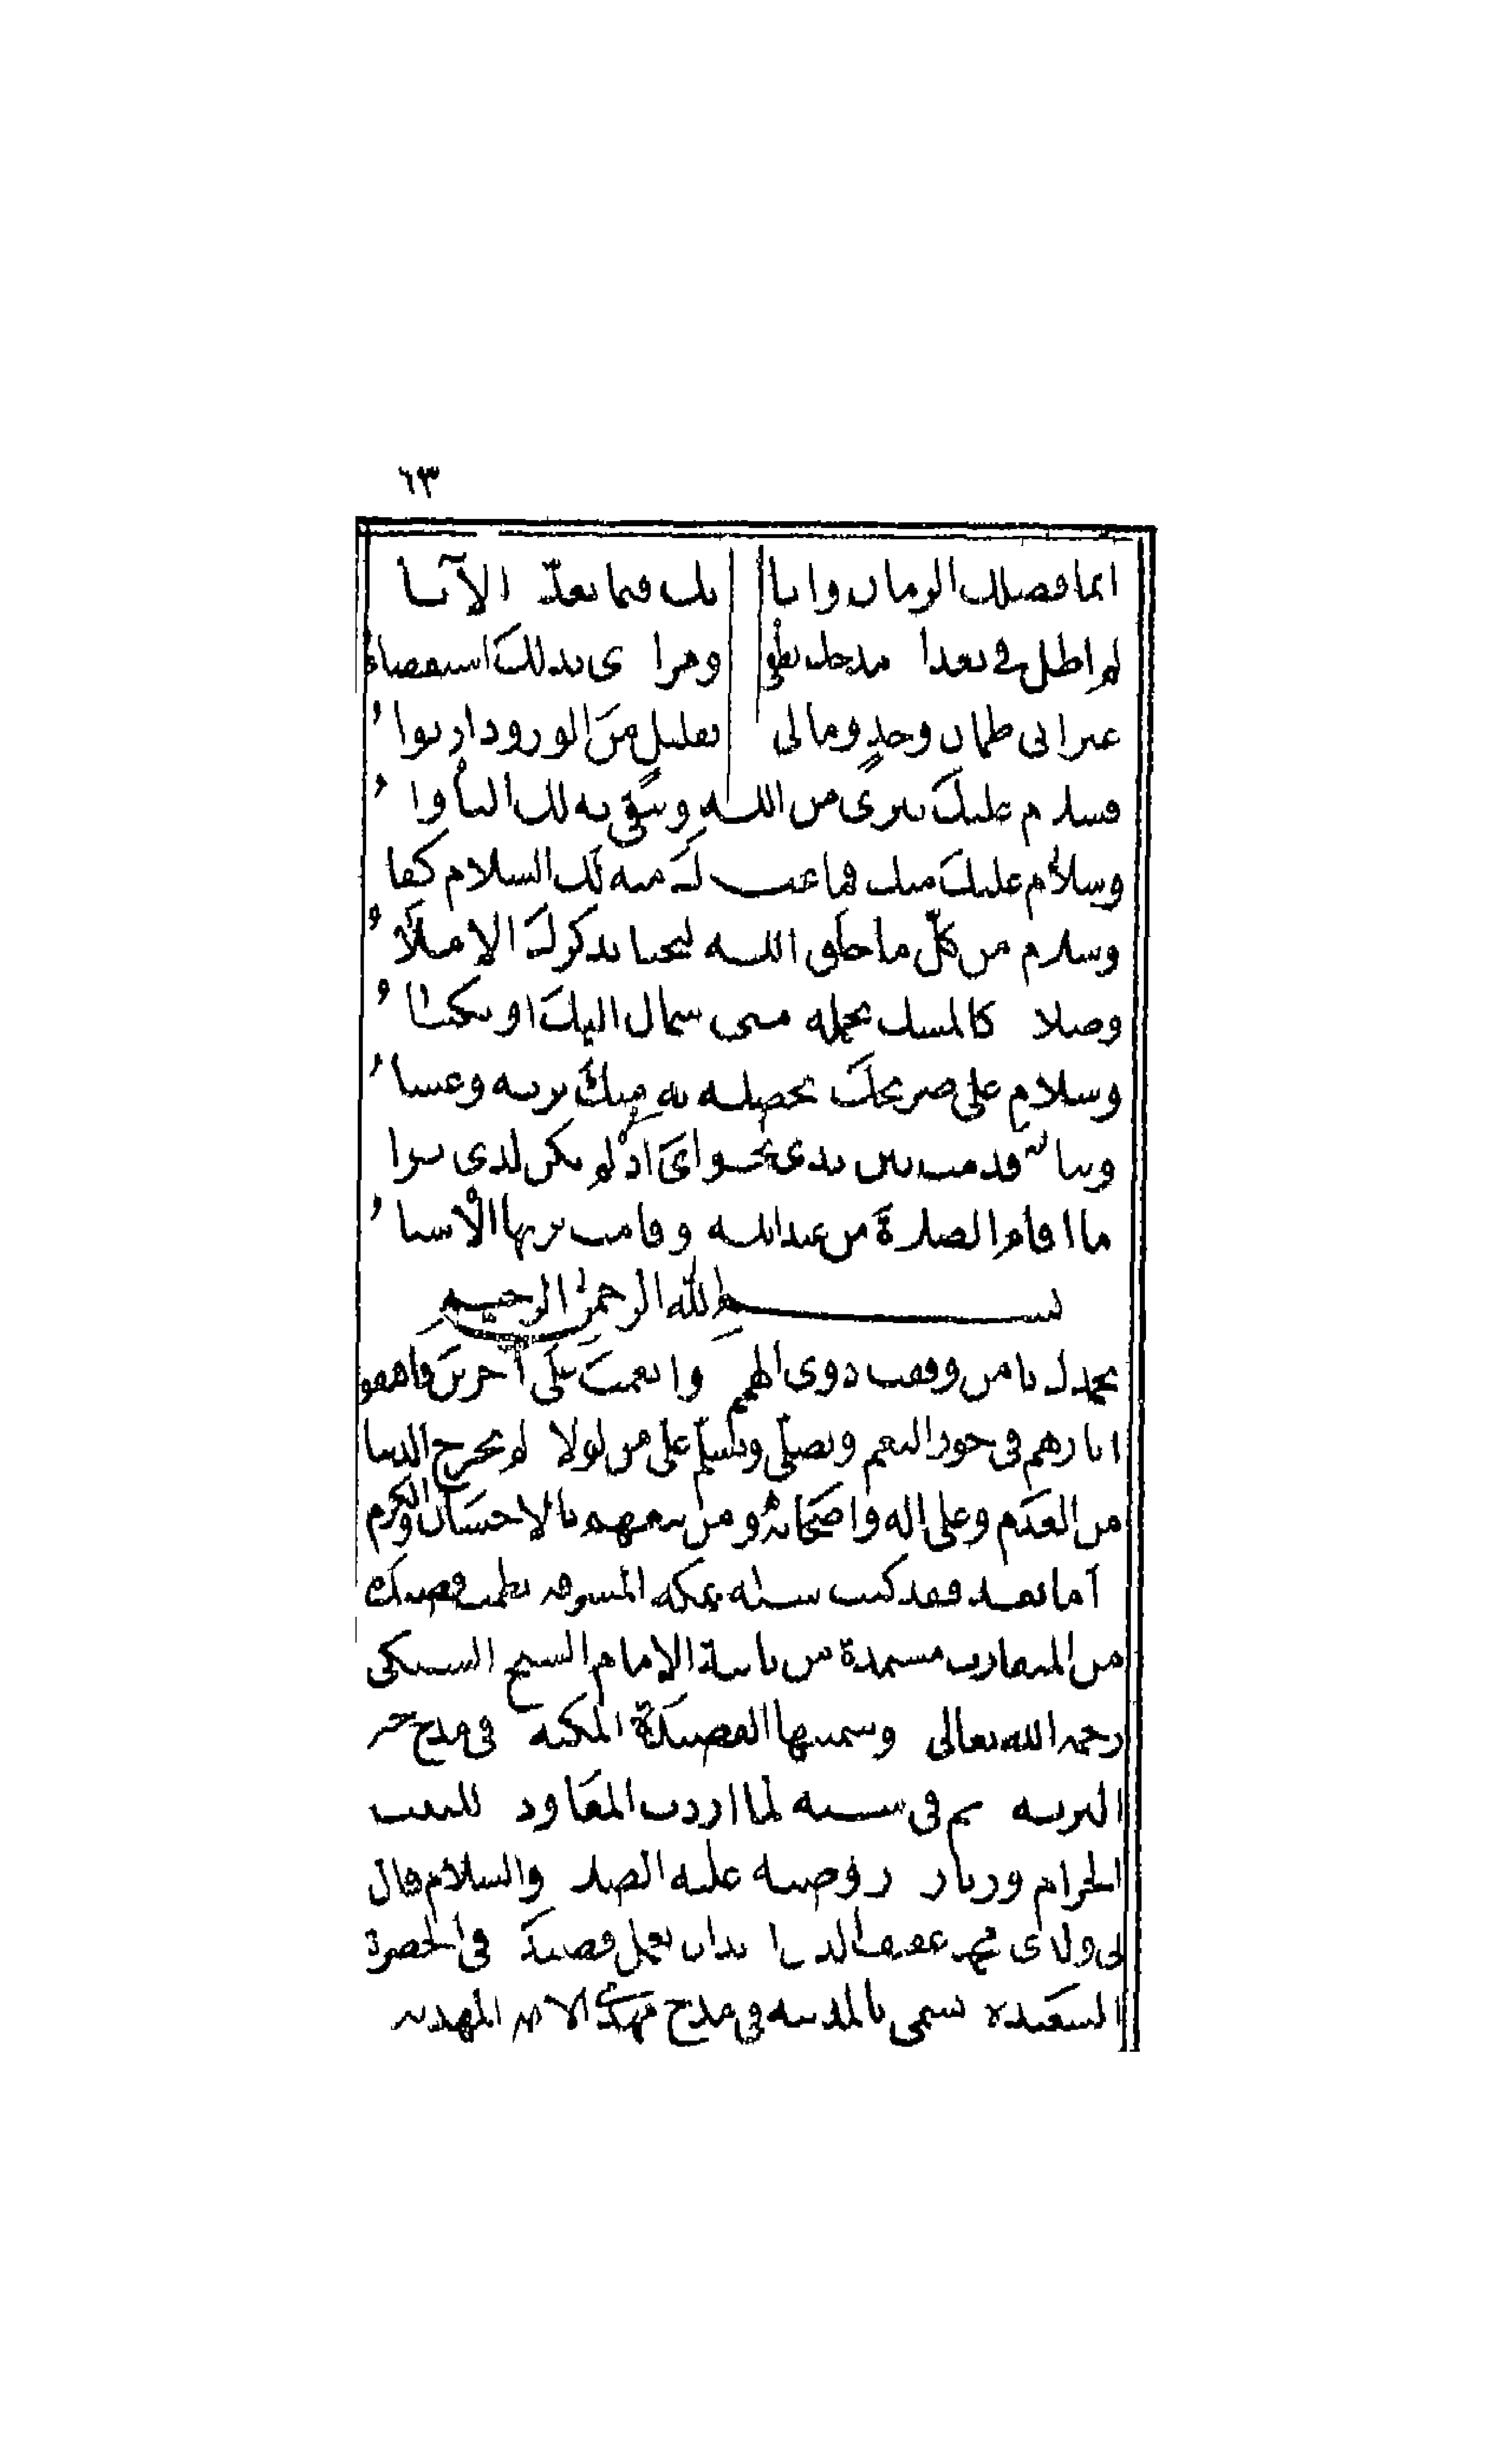 ٦٣
انما فضلك الزمان وايا تك فيما نعدّ الآنا
لم اطل في تعدا مدحك نطقي ومرا ى بذلك استقصاء
غير انى ظمان وجدٍ ومالى بقليل من الورود ارتوا ء
فسلام عليك تترى من الله وتبقى به لك البأوا ء
وسلام عليك منك فما غيـ ـرك منه لك السلام كفا
وسلام من كلّ ما خلق الله لتحيا بذكرك الاملا ء
وصلا كالمسك تحمله منى شمال اليك او نكبا ء
وسلام على ضريحك تخضل به منك تربه وعسا ء
وثنا قدمت بين يدى نجواى اذ لم يكن لدى ثرا
ما اقام الصلاة من عبد الله وقامت بربها الاشيا ء
بسم الله الرحمن الرحيم
نحمدك يا من وفقت ذوى الهمم وانعمت على آخرين
اثارهم فى النعم ونصلى ونسلم على من لولا لم تخرج الدنيا
من العدم وعلى اله واصحابه ومن تبعهم بالاحسان والكرم
أما بعد فقد كنت بمكة المشرفة نظمت قصيدة
من المتقارب مستمدة من تائية الامام الشيخ السبكى
رحمه الله تعالى وسميتها القصيدة المكية فى مدح خير
البرية ثم فى سنة لما اردت للبيت
الحرام وزيار روضة عليه الصلا والسلام قال
لى ولدى محمد بدان تعمل قصيدة فى الحضرة
السعيدة تسمى بالمدينة فى مدح المهديه